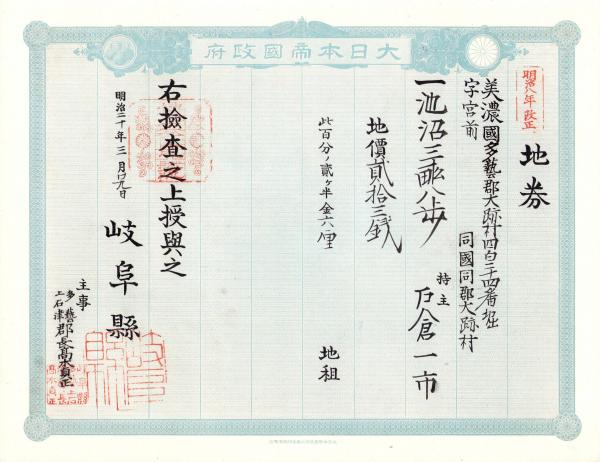 大日本帝國政府
明治十八年改正
地券
美濃國多藝郡大跡村四百三十四番堀
字宮前
同國同郡大跡村
一池沼三畝八歩
持主 戸倉一市
地價貳拾三錢
地租
此百分ノ貳ヶ半金六厘
右檢査之上授與之
明治二十年三月
岐阜縣
主事
多藝
上石津
郡長髙木貞正